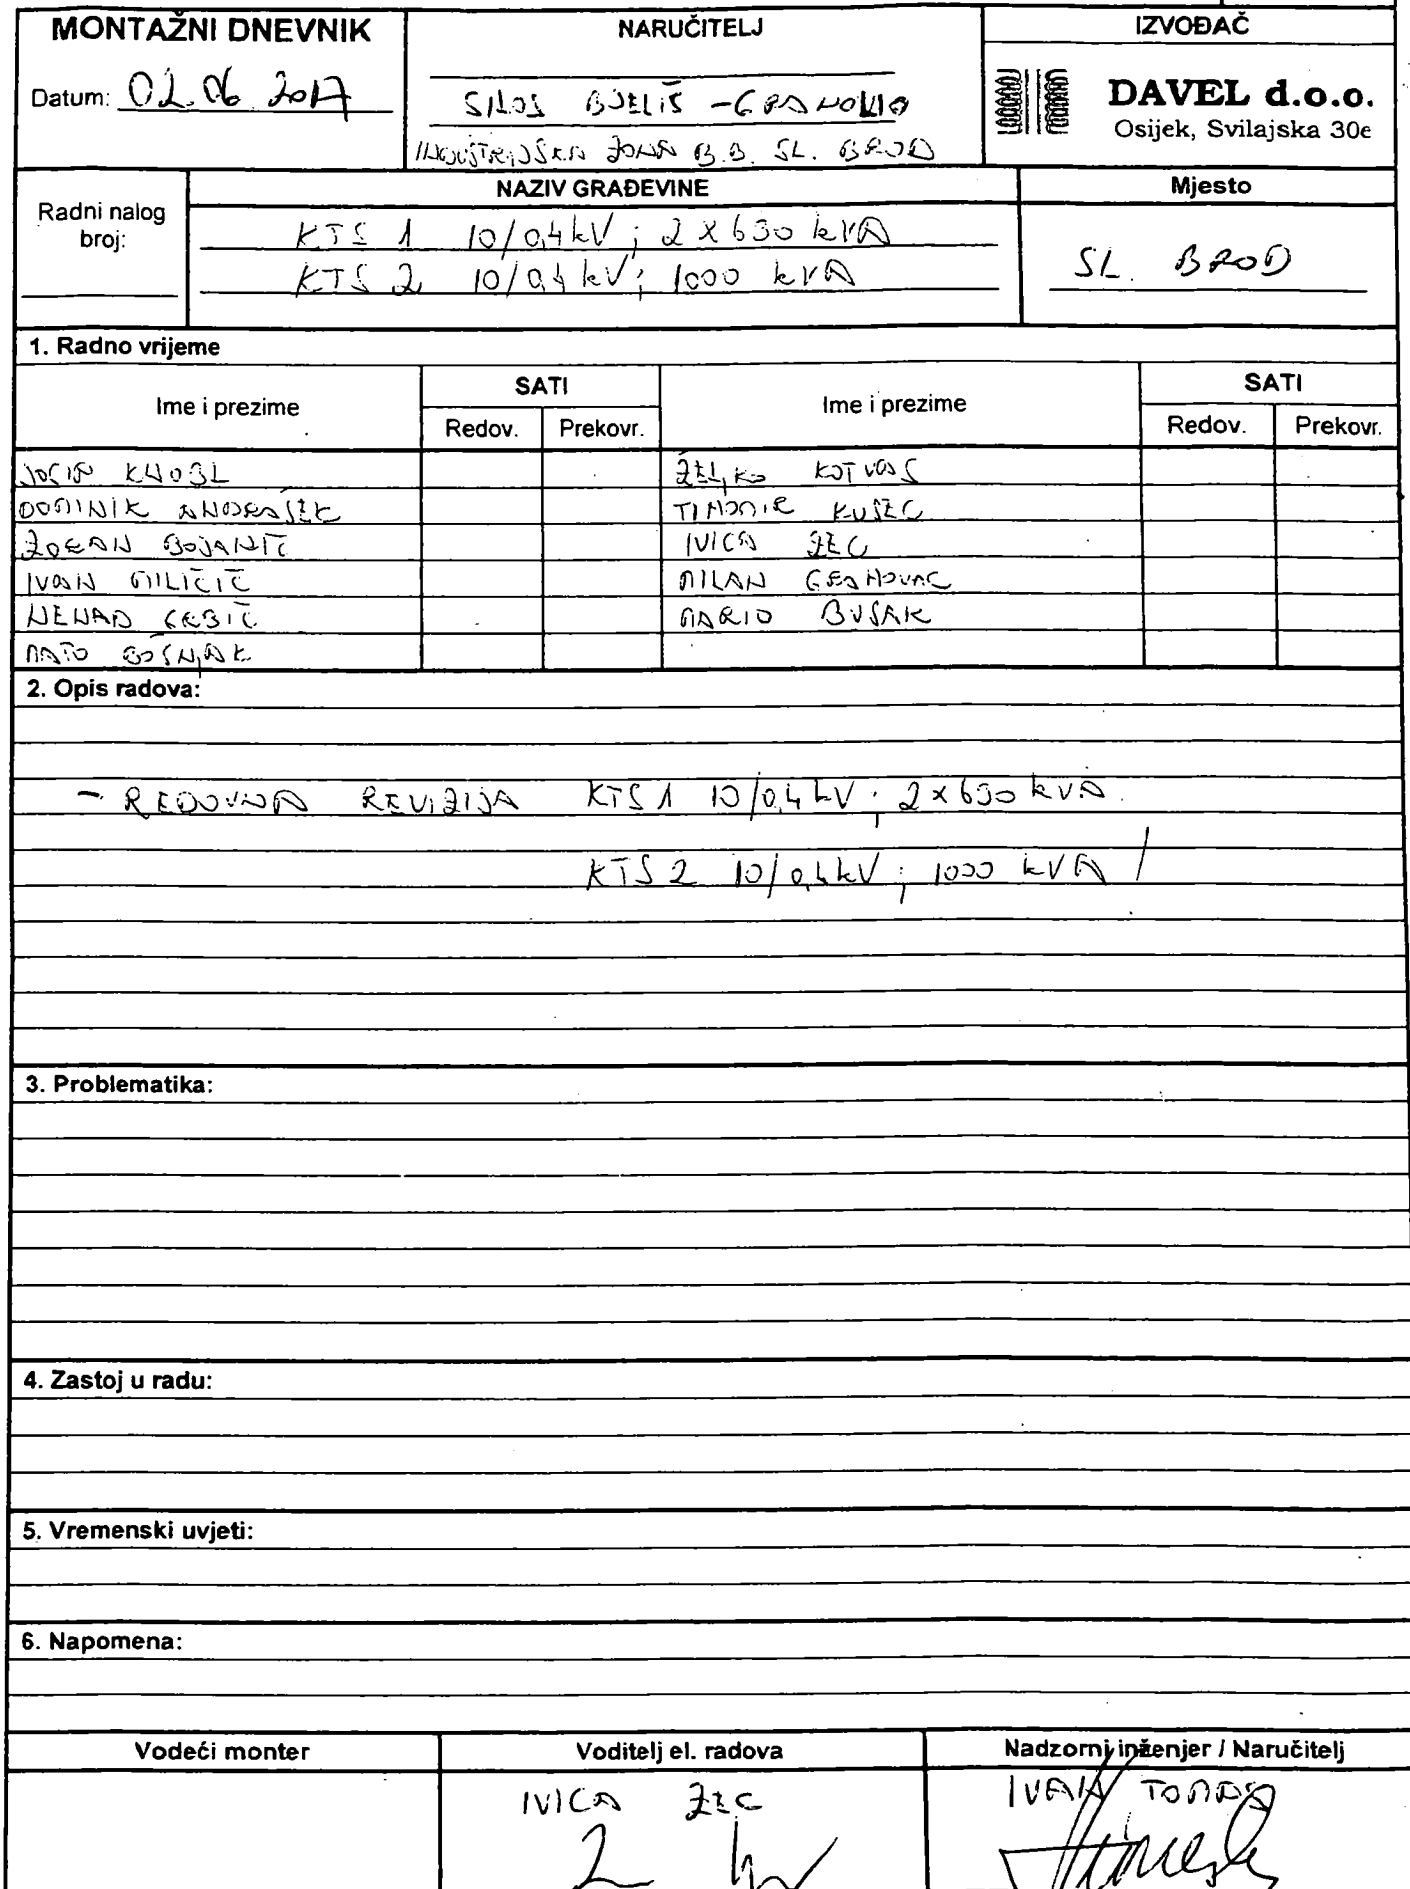 MONTAŽNI DNEVNIK
Datum: 02.06.2017
NARUČITELJ
SILOS BJELIŠ - GRANOLIO
INDUSTRIJSKA ZONA B.B. SL. BROD
IZVOĐAČ
DAVEL d.o.o.
Osijek, Svilajska 30e
Radni nalog
broj:
NAZIV GRAĐEVINE
KTS 1 10/0,4 kV; 2 x 630 kVA
KTS 2 10/0,4 kV; 1000 kVA
Mjesto
SL. BROD
1. Radno vrijeme
Ime i prezime SATI Ime i prezime SATI
Redov. Prekovr. Redov. Prekovr.
JOSIP KNOBL ŽELJKO KOTVAS
DOMINIK ANDRAŠEK TIHOMIR KUŠEC
ZORAN BOJANIĆ IVICA ZEC
IVAN MILIČIĆ MILAN GRAHOVAC
NENAD GRBIĆ MARIO BUŠAK
MATO BOŠNJAK
2. Opis radova:
- REDOVNA REVIZIJA KTS 1 10/0,4 kV; 2 x 630 kVA
KTS 2 10/0,4 kV; 1000 kVA /
3. Problematika:
4. Zastoj u radu:
5. Vremenski uvjeti:
6. Napomena:
Vodeći monter
Voditelj el. radova
IVICA ZEC
Nadzorni inženjer / Naručitelj
IVAN TOMAS